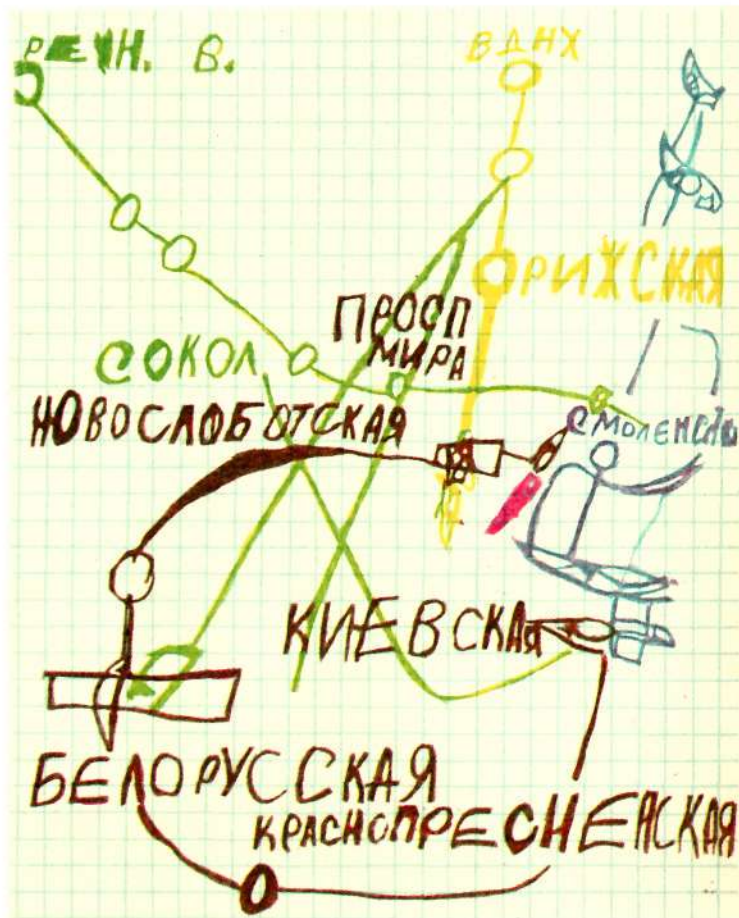 РЕЧН. В.
ВДНХ
РИЖСКАЯ
ПРОСП
МИРА
СОКОЛ
НОВОСЛОБОТСКАЯ
КИЕВСКАЯ
БЕЛОРУССКАЯ
КРАСНОПРЕСНЕНСКАЯ